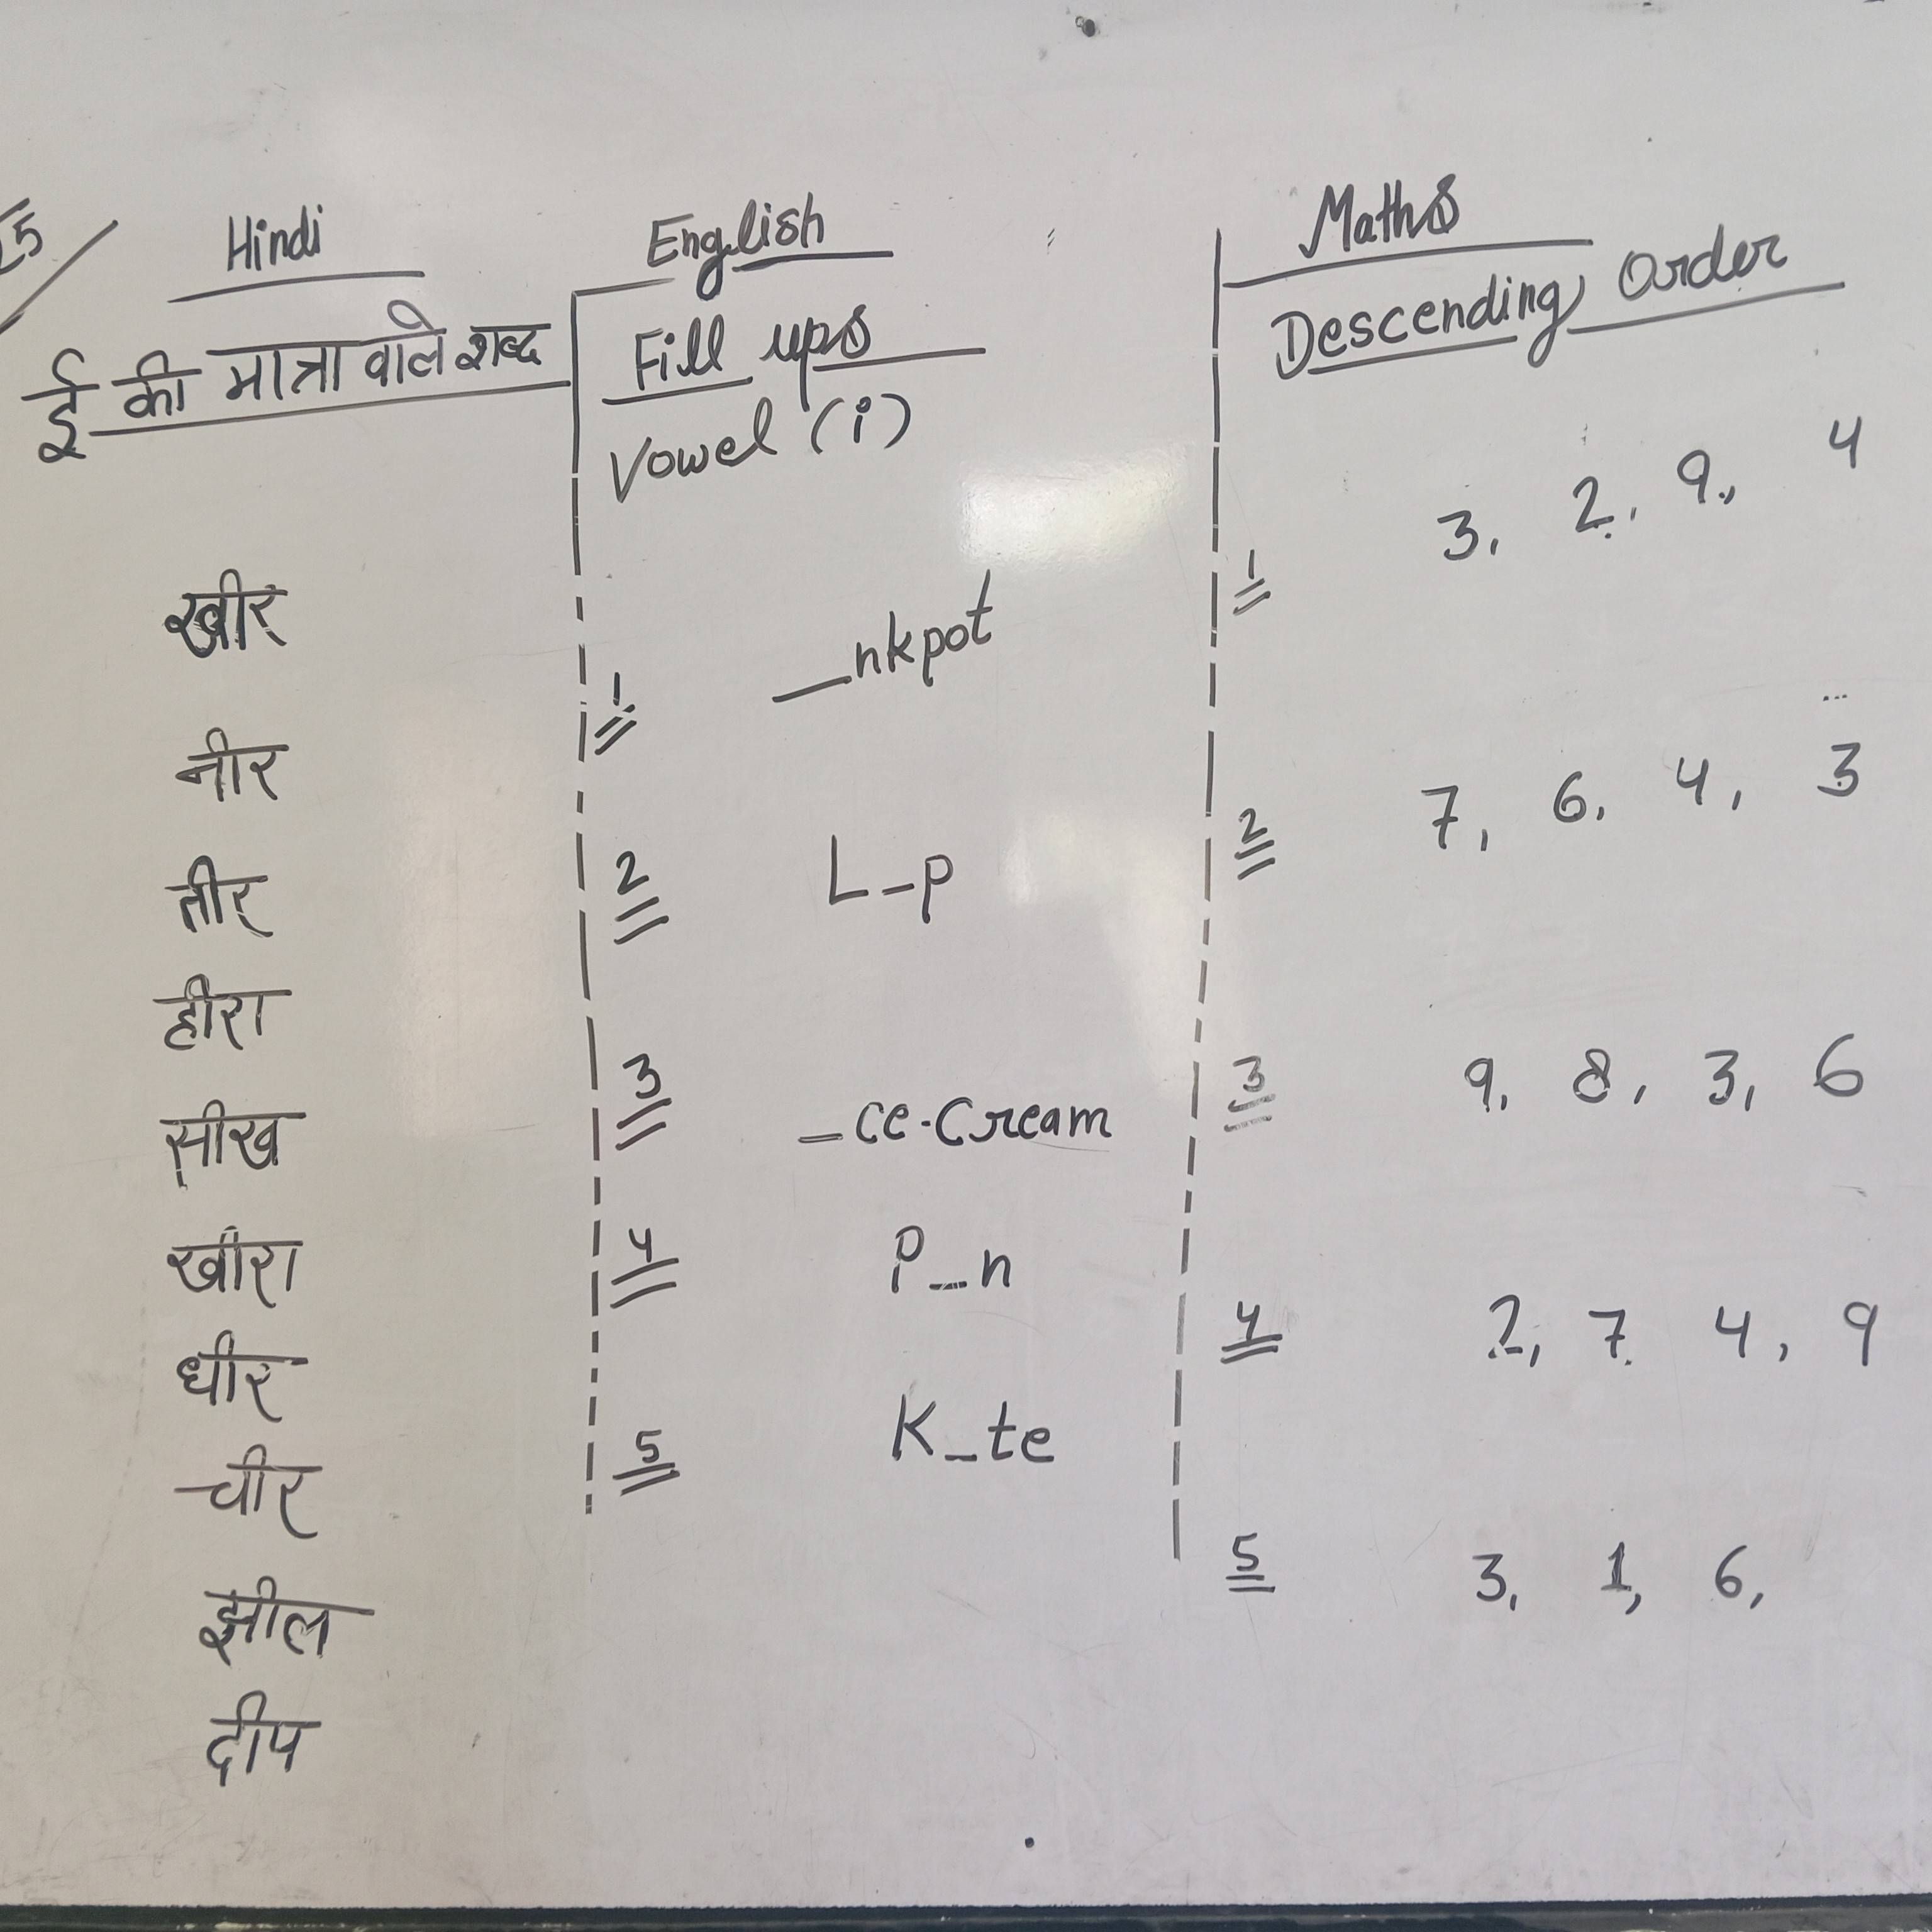 25
Hindi
ई की मात्रा वाले शब्द
खीर
नीर
तीर
हीरा
सीख
खीरा
धीर
चीर
झील
दीप
English
Fill ups
Vowel (i)
1 __nkpot
2 L_p
3 _ce-Cream
4 P_n
5 K_te
Maths
Descending Order
1 3, 2, 9, 4
2 7, 6, 4, 3
3 9, 8, 3, 6
4 2, 7 4, 9
5 3, 1, 6,